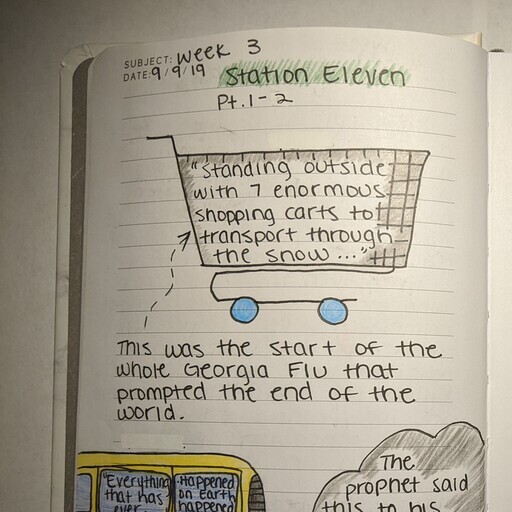 SUBJECT: Week 3
DATE: 9/9/19
Station Eleven
Pt. 1-2
"Standing outside
with 7 enormous
shopping carts to
transport through
the snow..."
This was the start of the
whole Georgia Flu that
prompted the end of the
world.
"Everything
that has
ever
Happened
on Earth
happened
The
prophet said
this to his